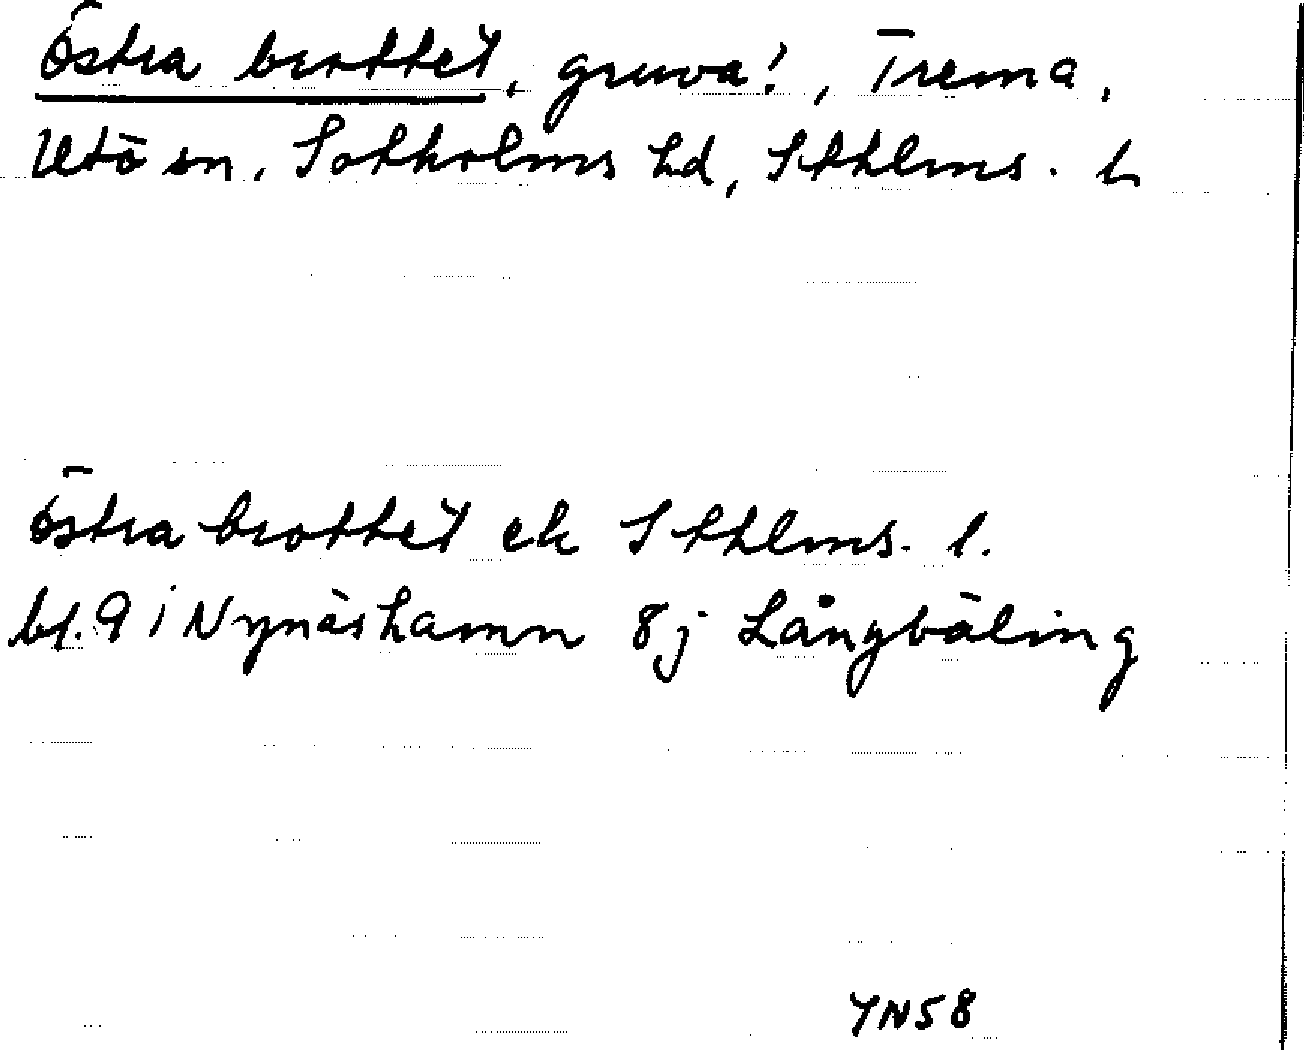 Östra brottet, gruva!, Trema,
Utö sn, Sotholms hd, Sthlms. l.
Östra brottet ek Sthlms. l.
bl. 9 i Nynäshamn 8j Långbäling
YN58